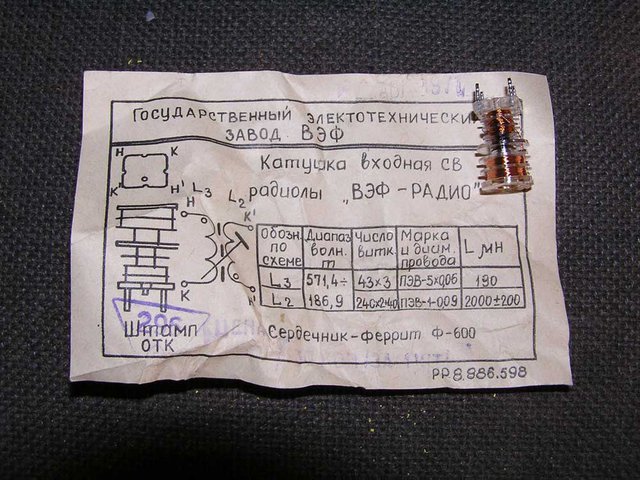 ГОСУДАРСТВЕННЫЙ ЭЛЕКТОТЕХНИЧЕСКИ
ЗАВОД ВЭФ
Катушка входная СВ
радиолы „ВЭФ-РАДИО"
Н К
К' Н'
L3 L2
Н К'
К Н
Обозн. по схеме Диапаз. волн. m Число витк. Марка и диам. провода L мкн
L3 571,4÷ 43×3 ПЭВ-5×0,06 190
L2 186,9 240×2=40 ПЭВ-1-0,09 2000±200
206
Штамп
ОТК
Сердечник-феррит Ф-600
РР8.886.598